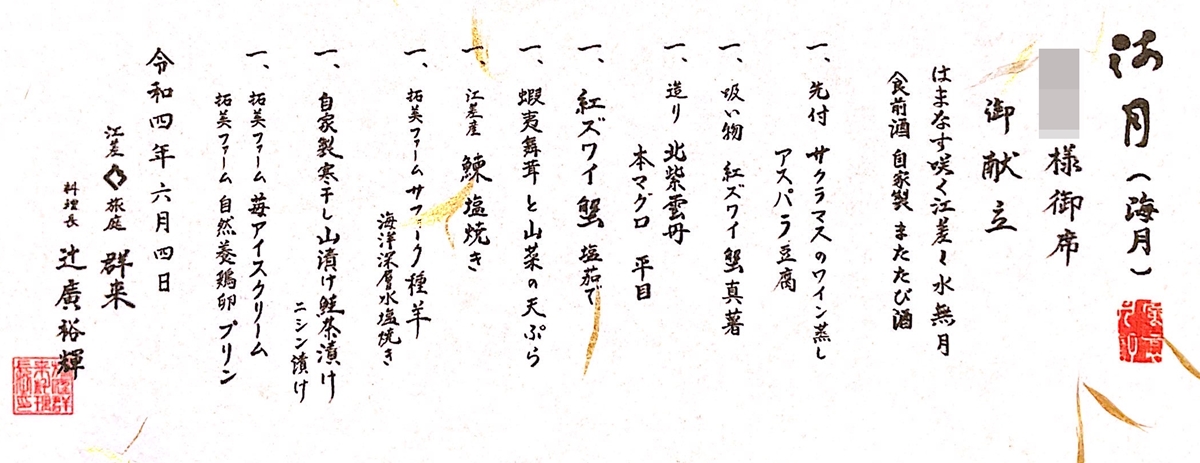 海月（海月）
様御席
御献立
はまなす咲く江差〻水無月
食前酒 自家製 またたび酒
一、先付 サクラマスのワイン蒸し
アスパラ豆腐
一、吸い物 紅ズワイ蟹真薯
一、造り 北紫雲丹
本マグロ 平目
一、紅ズワイ蟹 塩茹で
一、蝦夷舞茸と山菜の天ぷら
一、江差産 鰊塩焼き
一、拓美ファーム サフォーク種羊
海洋深層水塩焼き
一、自家製寒干し山漬け鮭茶漬け
ニシン漬け
一、拓美ファーム 苺アイスクリーム
拓美ファーム 自然養鶏卵 プリン
令和四年六月四日
江差 旅庭 群来
料理長 辻廣裕輝